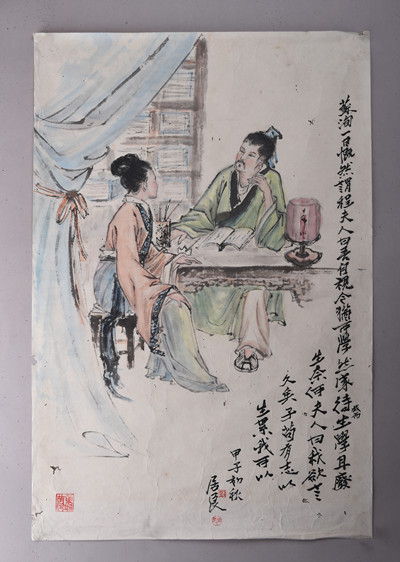 蘇洵一日慨然謂程夫人曰吾自視今猶可學然家待我而生學且廢
生奈何夫人曰我欲言
久矣子苟有志以
生累我可以
甲子初秋
居良